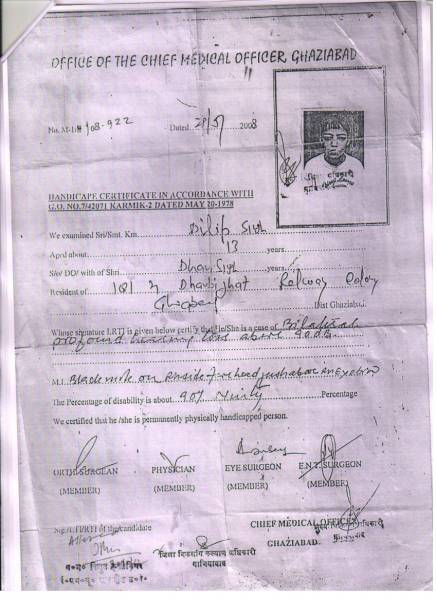 OFFICE OF THE CHIEF MEDICAL OFFICER, GHAZIABAD
No. M-1/H 08-922 Dated 28/5/ 2008
HANDICAPE CERTIFICATE IN ACCORDANCE WITH
G.O. NO.7/42071 KARMIK-2 DATED MAY 20-1978
We examined Sri/Smt. Km. Dilip Sigh
Aged about 13 years
S/o/ DO/ with of Shri Dhan Sigh years.
Resident of 181 Dhaubi ghat Railway Colony
Dist Ghaziabad.
Whose signature LRTI is given below certify that he/She is a case of Bilateral
profound hearing loss above 90dB
M.I. Black mole on side forehead just above
The Percentage of disability is about 90% Ninty Percentage
We certified that he /she is permanently physically handicapped person.
ORTH SURGEAN PHYSICIAN EYE SURGEON E.N.T. SURGEON
(MEMBER) (MEMBER) (MEMBER) (MEMBER)
of the candidate
CHIEF MEDICAL OFFICER
GHAZIABAD.
जिला विकलांग कल्याण अधिकारी
गाजियाबाद